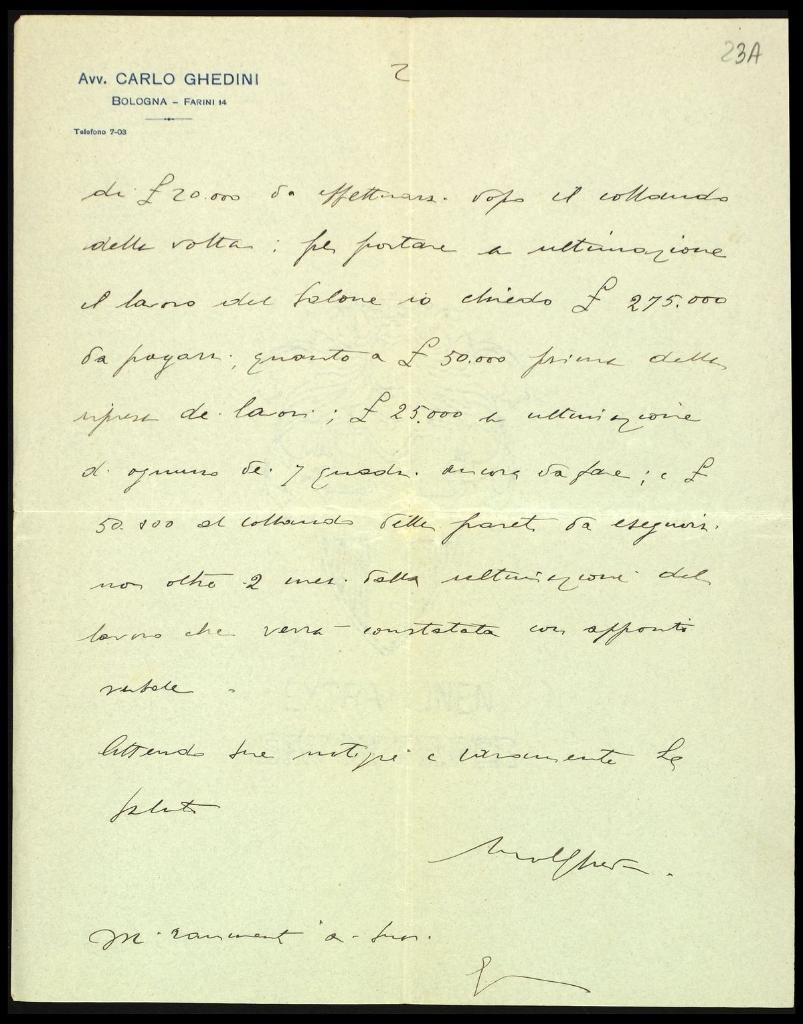 23A
2
Avv. CARLO GHEDINI
BOLOGNA – FARINI 14
Telefono 7-03
di £ 20.000 da effettuarsi dopo il collaudo
della volta; per portare a ultimazione
il lavoro del Salone io chiedo £ 275.000
da pagarsi; quanto a £ 50.000 prima della
ripresa dei lavori; £ 25.000 a ultimazione
di ognuno dei 7 quadri ancora da fare; e £
50.000 al collaudo delle pareti da eseguirsi
non oltre 2 mesi dalla ultimazione del
lavoro che verrà constatata con apposito
verbale.
Attendo sue notizie e vivamente La
saluto
Mi rammenti a suoi.